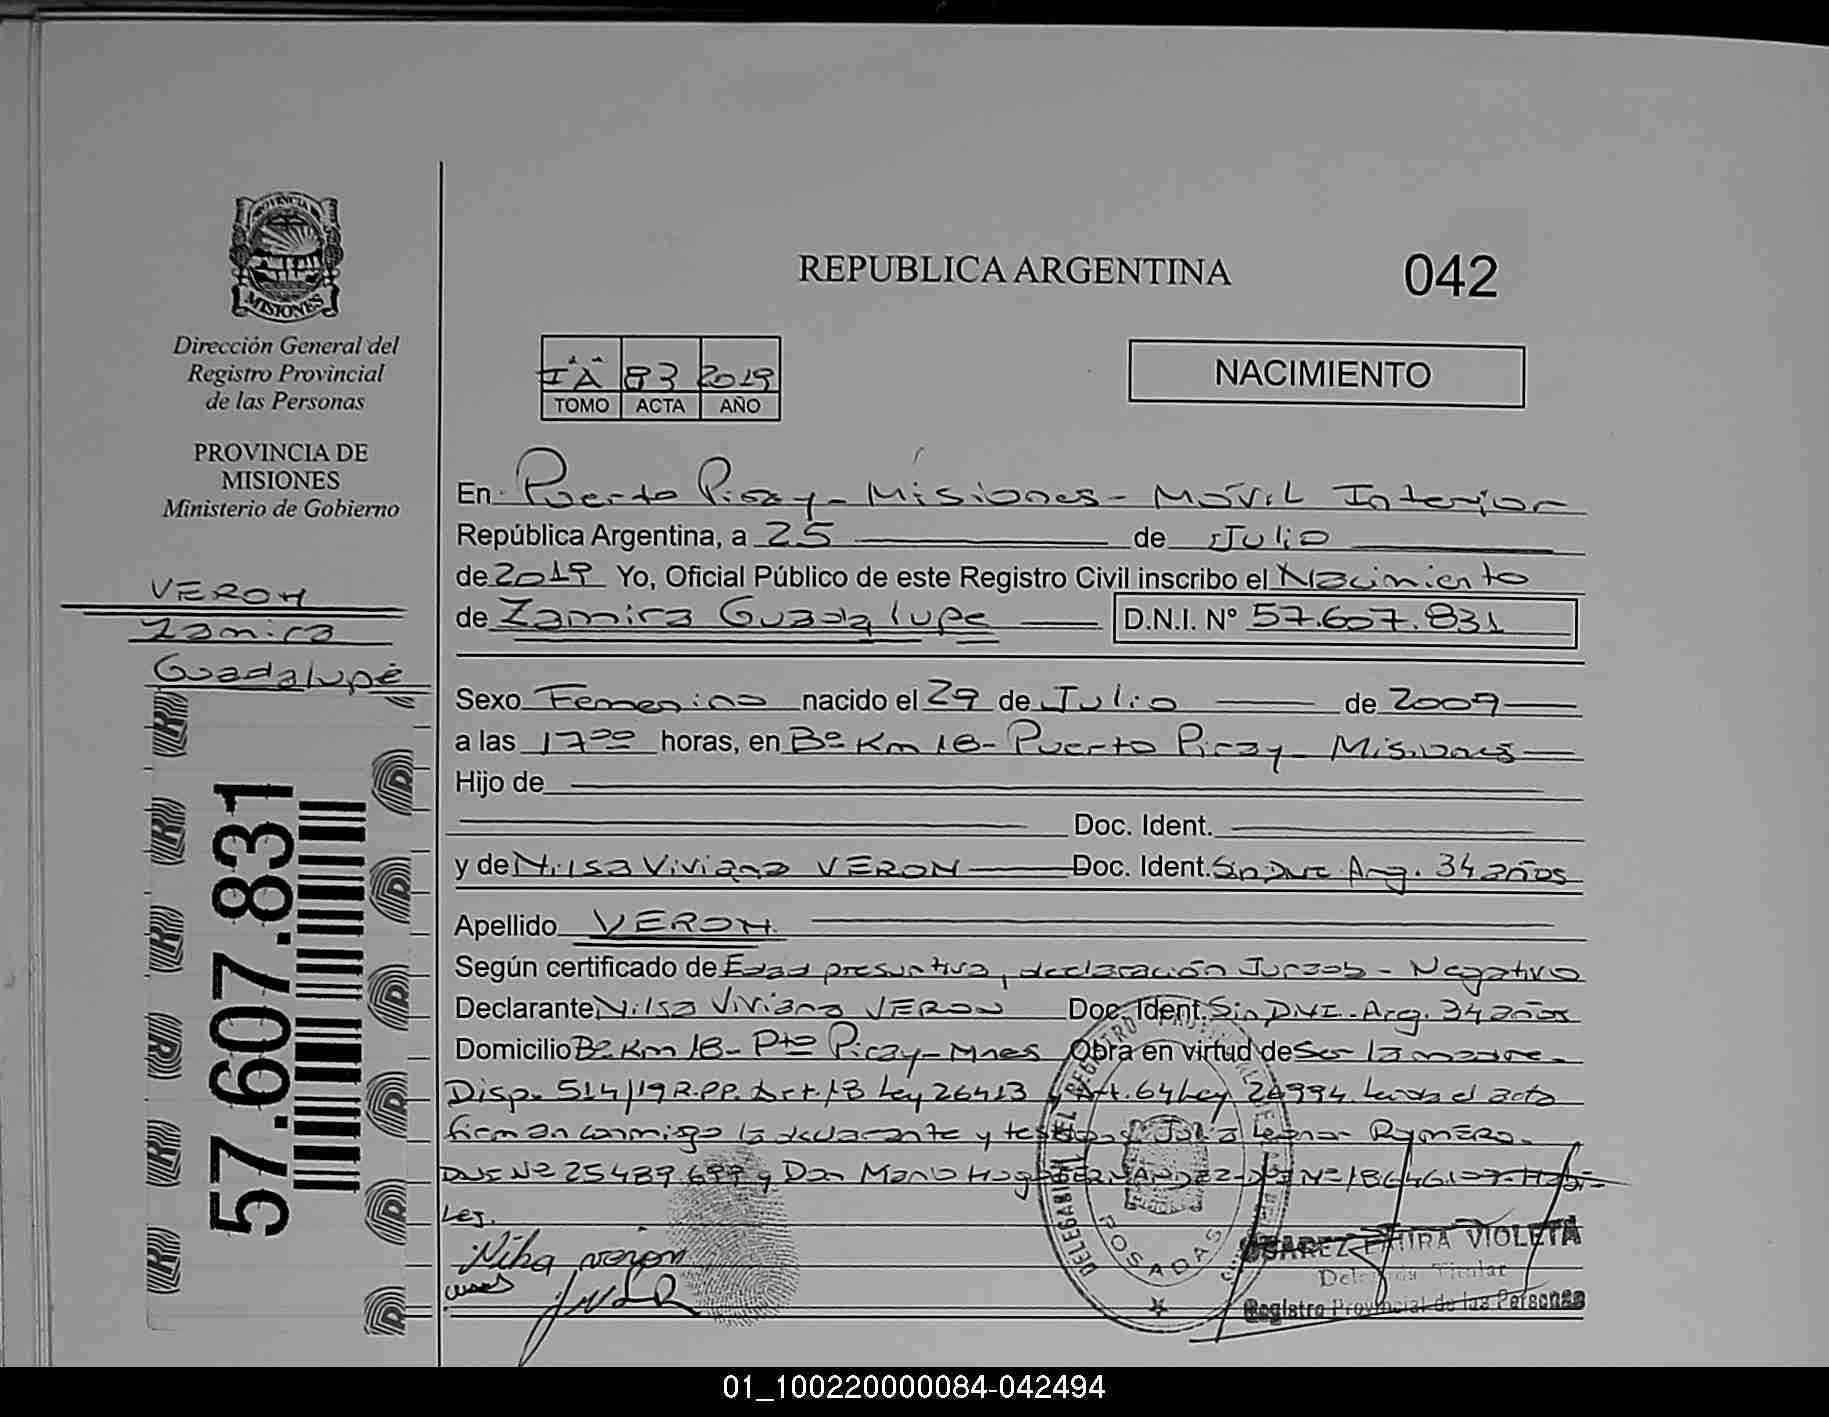 PROVINCIA DE
MISIONES
Dirección General del
Registro Provincial
de las Personas
PROVINCIA DE
MISIONES
Ministerio de Gobierno
VERON
Zamira
Guadalupe
57.607.831
REPUBLICA ARGENTINA
042
NACIMIENTO
83 2019
TOMO ACTA AÑO
En Puerto Piray - Misiones - Móvil Interior
República Argentina, a 25 de Julio
de 2019 Yo, Oficial Público de este Registro Civil inscribo el Nacimiento
de Zamira Guadalupe D.N.I. Nº 57.607.831
Sexo Femenino nacido el 29 de Julio de 2009
a las 17 00 horas, en Bº Km 18 - Puerto Piray - Misiones
Hijo de
Doc. Ident.
y de Nilsa Viviana VERON Doc. Ident. Sin DNI Arg. 34 años
Apellido VERON
Según certificado de Edad presuntiva, declaración Jurada - Negativo
Declarante Nilsa Viviana VERON Doc. Ident. Sin DNI - Arg. 34 años
Domicilio Bº Km 18 - Pto Piray - Mnes Obra en virtud de Ser la madre.
Disp. 514/19 R.P.P. Art. 18 Ley 26413 y Art. 64 Ley 26994. Leída el acta
firman conmigo la declarante y testigos Leonor
DNI Nº 25489.699 y Don Mario Hugo DNI Nº Hábi-
les.
Nilsa veron
DELEGACION DEL REGISTRO
POSADAS
SUAREZ ELVIRA VIOLETA
Delegada Titular
Registro Provincial de las Personas
01_100220000084-042494